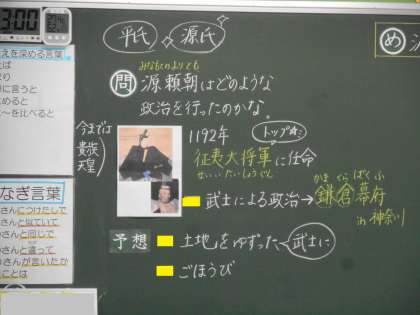 3:00
平氏
源氏
め
えを深める言葉
に言うと
めると
～を比べると
みなもとのよりとも
問 源頼朝はどのような
政治を行ったのかな。
今までは
貴族
天皇
1192年
トップ
征夷大将軍に任命
せいいたいしょうぐん
かまくらばくふ
武士による政治→鎌倉幕府
in 神奈川
なぎ言葉
さんにつけたして
さんと似ていて
さんと同じで
さんと違って
さんが言いたか
ことは
予想
土地をゆずった 武士に
ごほうび